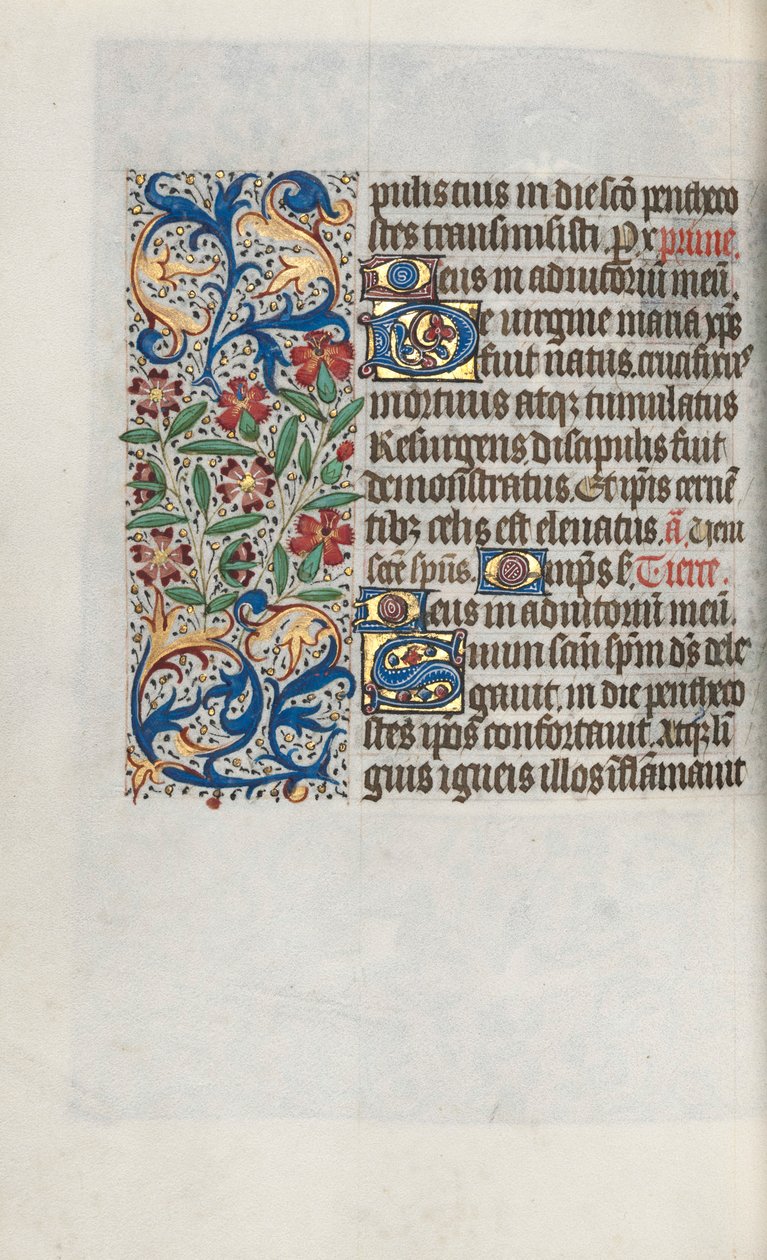 pulis tuis in die sc̄o pentheco
stes transmisisti. P̲ x prime.
Deus in adiutoriū meū.
De uirgine maria xp̄s
fuit natus. crucifixus
mortuus atqꝫ tumulatus
Resurgens, discipulis fuit
demonstratus. Et ip̄is cernē
tibꝫ celis est eleuatus. ā. Veni
sc̄tē sp̄us. Omp̄s s̄. Tierce.
Deus in adiutoriū meū.
Suum sc̄m sp̄m d̄s dele
gauit, in die pentheco
stes ip̄os confortauit. Atqꝫ lī
guis igneis illos īflāmauit